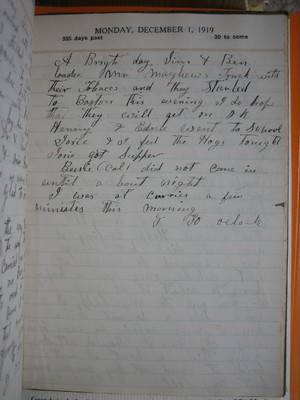 MONDAY, DECEMBER 1, 1919
335 days past 30 to come
A Bright day, Jim & Ben
loaded Mr Mayhews Truck with
their Tobacco and they Started
To Boston this evening I do hope
that they will get on O K
Henry & Edna went to School
Josie & I fed the Hogs tonight
Josie got Supper
did not come in
until a bout night
I was at Carries a few
minutes this morning
8 30 oclock